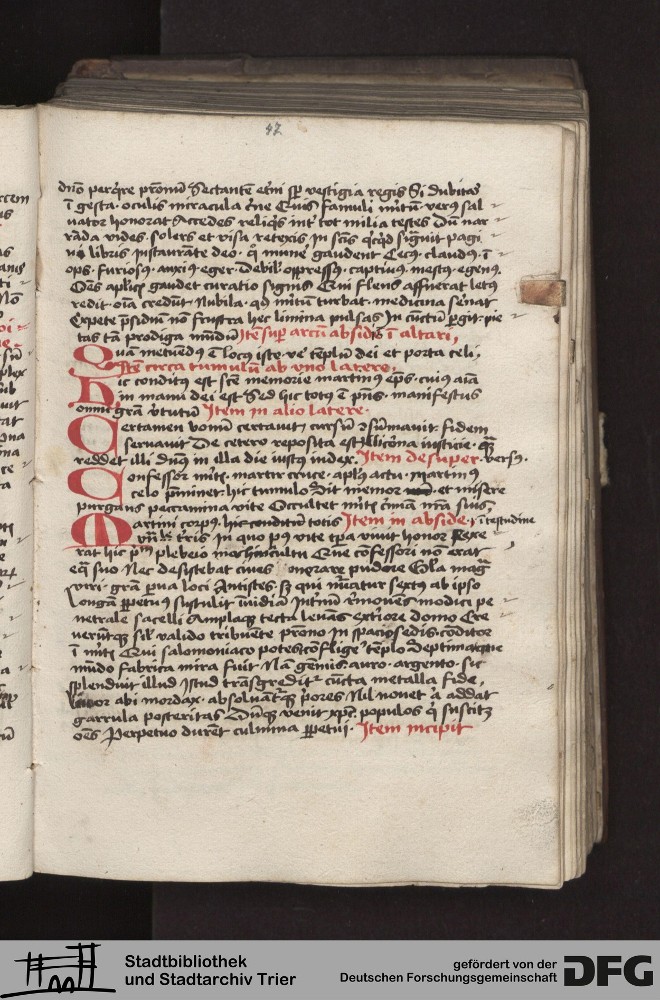 47
dn̄o perq̇rere pron̄u Sectantē et'ni sꝑ vestigia regis Si dubitas
ī gesta · oculis miracula c'ne Quis famuli m'itū verꝰ sal-
uator honorat Accedes reliq̇s int' tot milia testes Dū nar-
rāda vides · solers et visa retexis In sc̄is q̇cq̇d signuit pagi-
na libris Instaurāte deo · q̇ mun'e gaudent Cecꝰ · claudꝰ · ī
ops · furiosꝰ · anxiꝰ · eger · Debil' · oppressꝰ · captiuꝰ · mestꝰ · egenꝰ
Oēs aplic̄s gaudet curatio signis Qui flens affuerat letꝰ
redit · oīa credūt Nubila · qd̄ mitū turbat · medicina sēnat
Expete p̄sidiū nō frustra hec limina pulsas In cūctū ꝑgit · pie
tas tā prodiga mūdū Itē suꝑ arcū absidis ī altari,
Quā metuēdꝰ ē locꝰ iste · ve' tēplū dei et porta celi,
Itē circa tumulū ab vno latere,
Hic conditꝰ est sc̄e memorie martinꝰ ep̄s · cuiꝰ aīa
in manu dei est Sed hic totꝰ ē p̄ns · manifestus
omni grā v'tutū Item in alio latere ·
Certamen bonū certauit cursū ꝯsūmauit fidem
seruauit De cetero reposita est illi corōna iusticie · quā
reddet illi dn̄s in illa die iustꝰ iudex · Item desuper · versꝰ ·
Confessor m'itꝭ · martir cruce · apl̄us actu · Martinꝰ
celo p̄minet hic tumulo Sit memor et misere
purgans peccamina vite Occultet m'itꝭ c'mīa nr̄a suis,
Martini corpꝰ · hic conditū totis Item in abside · ī testudine
vn̄libꝫ t'ris In quo pꝰ vite tpr̄a viuit honor Texe
rat hic p̄m plebeio machina cultu Que cōfessori nō erat
eq̄ suo Nec desistebat ciues onerare pudore Gl̄a magā
viri · grā ꝑua loci Antistes · sꝫ qui nūeratur sextꝰ ab ipso
Longā ꝑpetuꝰ sustulit īuidiā Int'nū r'mouēs modici pe-
netrale sacelli Amplaqꝫ tecta leuās ext'iore domo Cre
uerūtqꝫ sil' valido tribuēte prōno In spacijs edis · cōditor
ī m'itꝭ Qui salomoniaco potes cōflige' tēplo Septima que
mūdo fabrica mira fuit Nā gēmis · auro · argento · sic
splenduit illud Istud trāsgredit' cūcta metalla fide,
Liuor abi mordax · absoluātqꝫ p̄ores Nil nouet a' addat
garrula posteritas Dūqꝫ venit xp̄c populos q̇ suscitꝫ
oēs Perpetuo durēt culmina ꝑpetui · Item incipit
Stadtbibliothek
und Stadtarchiv Trier
gefördert von der
Deutschen Forschungsgemeinschaft
DFG